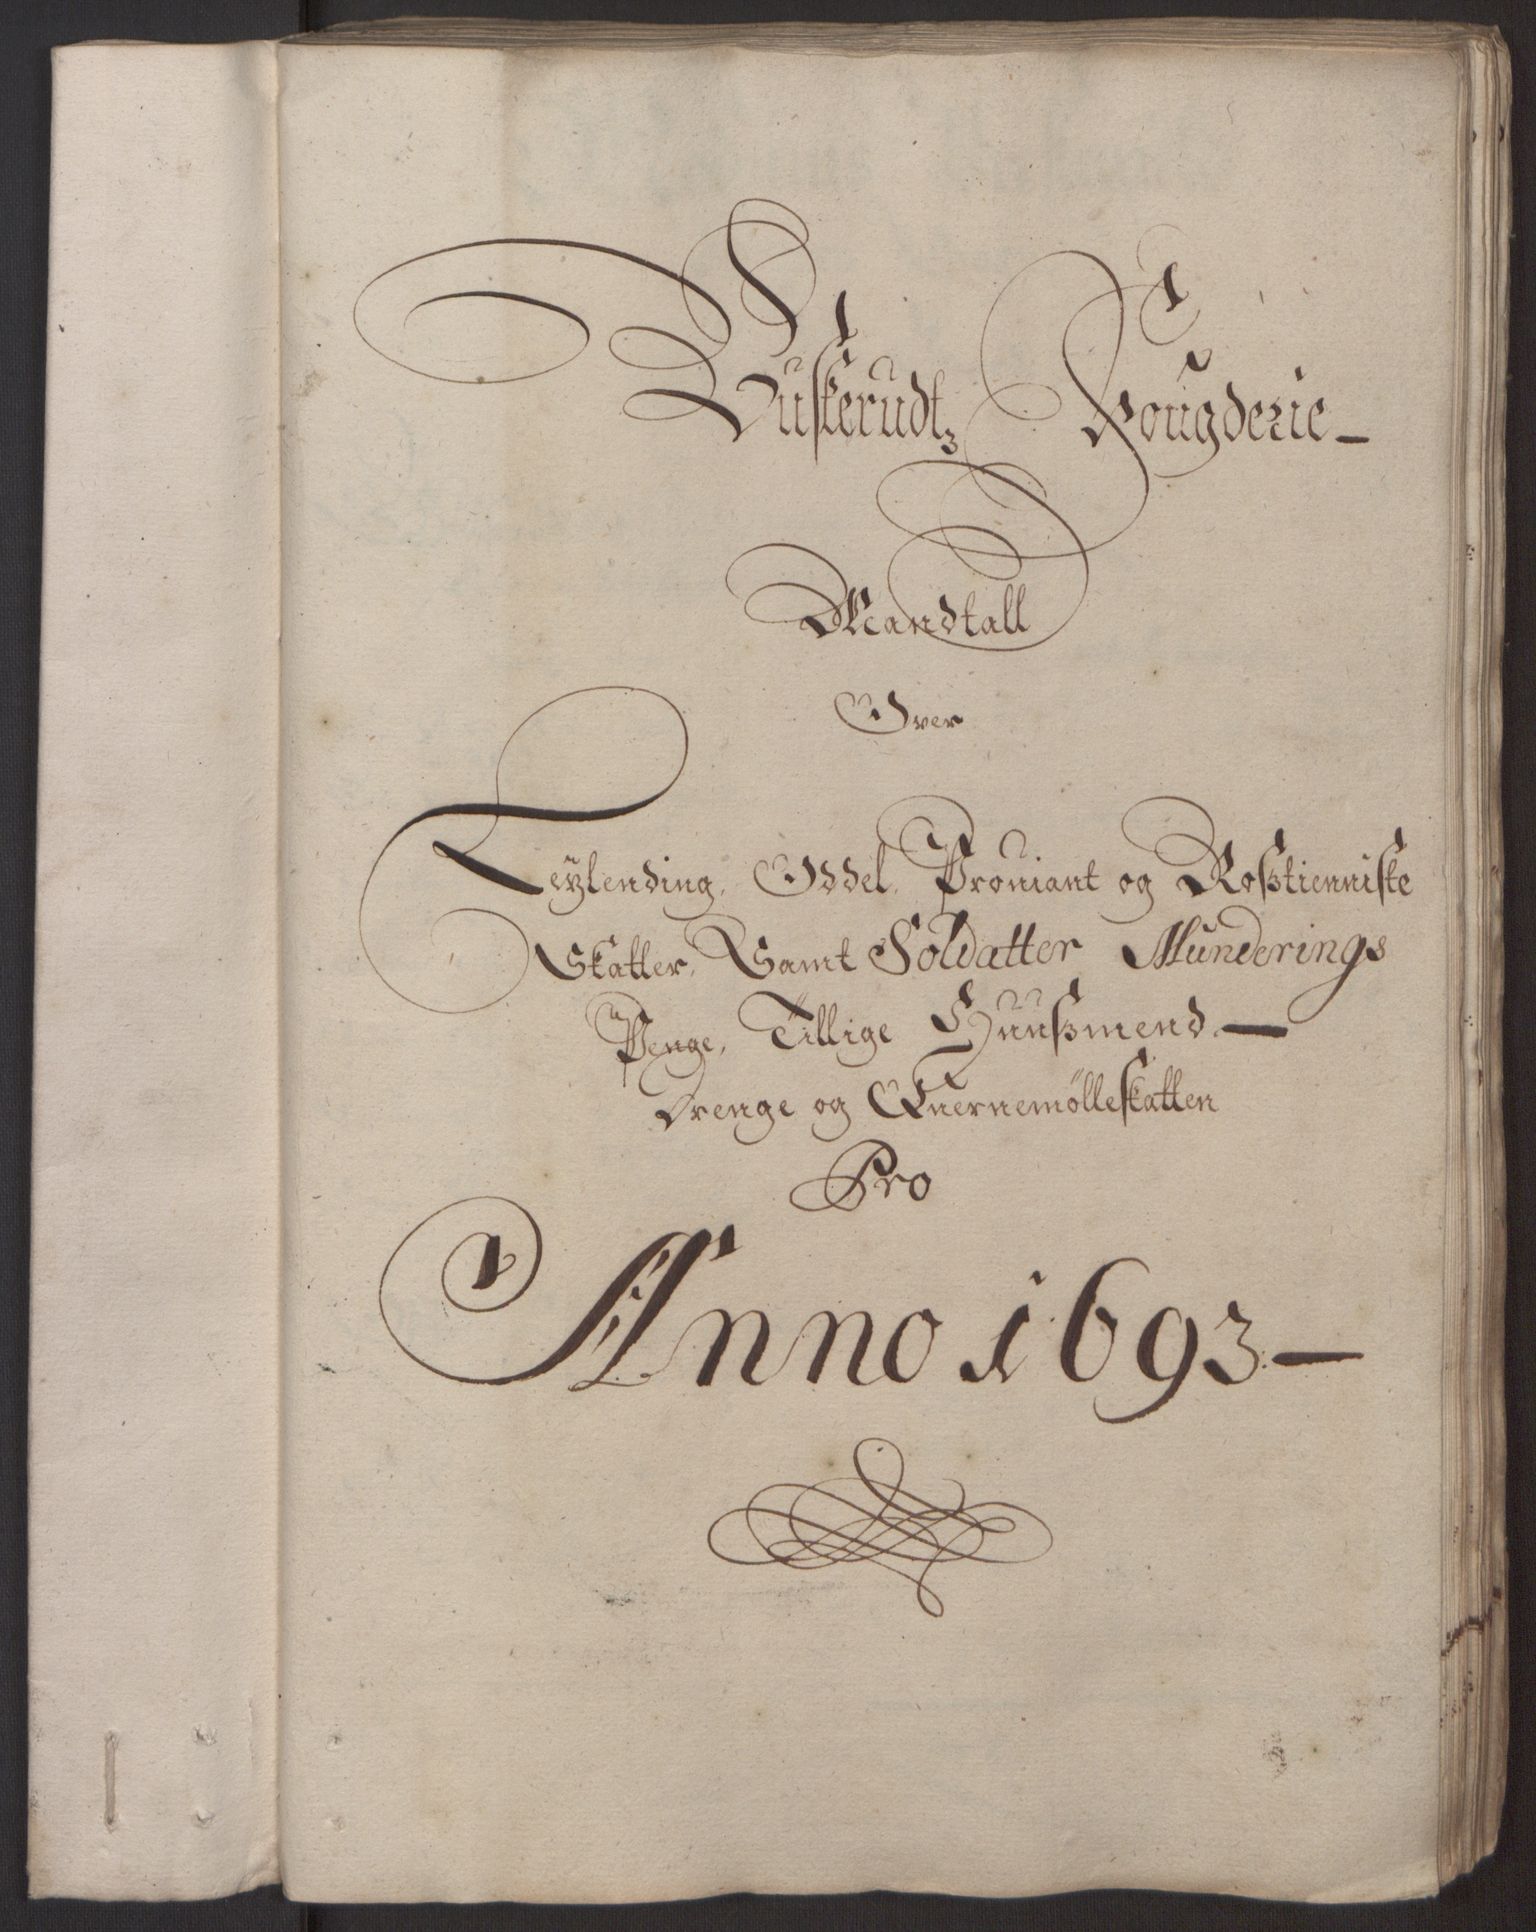 Buskerudtz Fougderie
Mandtall
Over
Leylending, Oddel, Proviant og Rosztienniste
Skatter, Samt Soldatter Munderings
Penge, Tillige Huuszmend
Drenge og Quernemølleskatten
Pro
Anno 1693